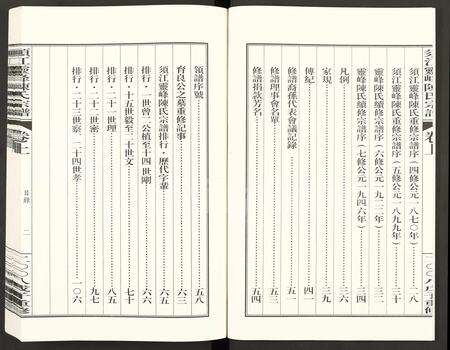 須江靈峰陳氏宗譜 卷上
須江靈峰陳氏重修宗譜序(四修公元一八七〇年)……二八
須江靈峰陳氏重修宗譜序(五修公元一八九九年)……三十
靈峰陳氏續修宗譜序(六修公元一九二二年)……三二
靈峰陳氏續修宗譜序(七修公元一九四六年)……三四
凡例……三六
家規……三九
傳紀……四一
修譜裔孫代表會議記錄……五一
修譜理事會名單……五三
修譜捐款芳名……五四
領譜序號……五八
育良公之墓重修記事……六三
須江靈峰陳氏宗譜排行·歷代字輩……六五
排行·一世曾二公植至十四世剛……六六
排行·十五世毅至二十世文……七十
排行·二十一世理……八五
排行·二十二世密……九七
排行·二十三世察、二十四世孝……一〇六
須江靈峰陳氏宗譜 卷上
目錄
二